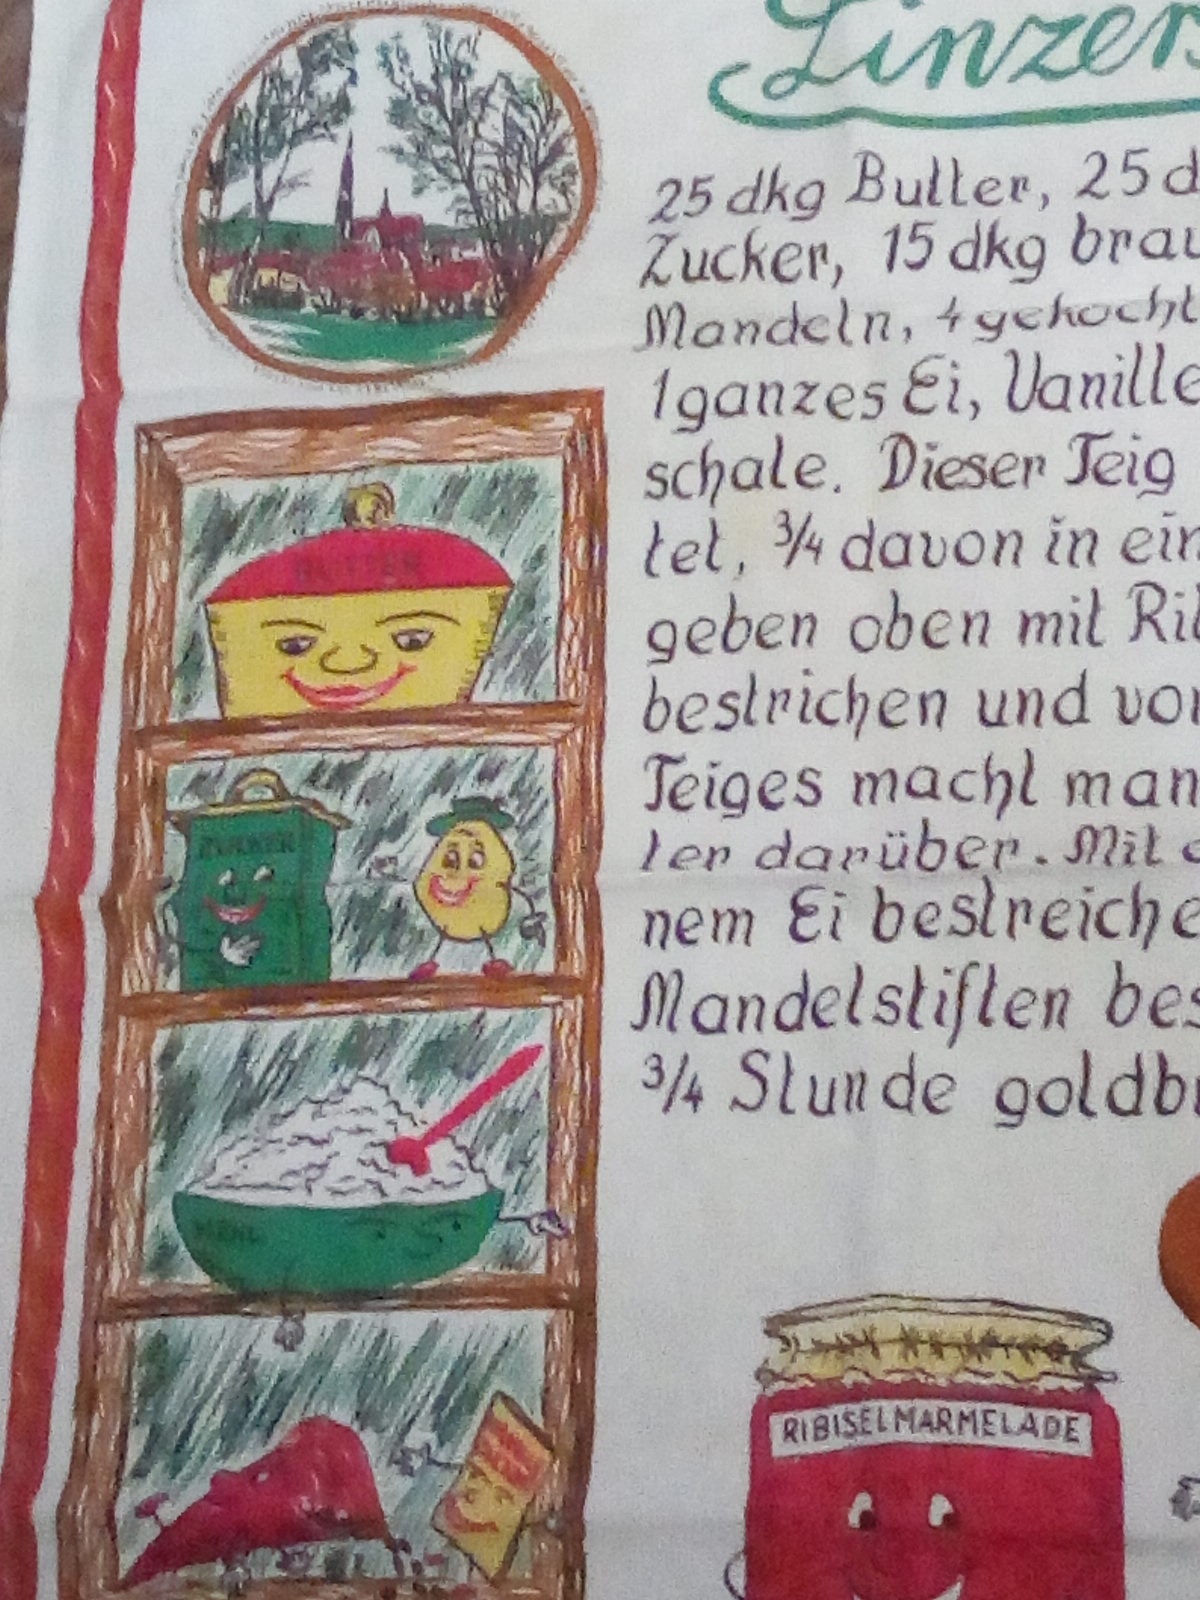 Linzer
25 dkg Butter, 25 d
Zucker, 15 dkg brau
Mandeln, 4 gekocht
1 ganzes Ei, Vanille
schale. Dieser Teig
tet, 3/4 davon in ein
geben oben mit Rib
bestrichen und vo
Teiges macht man
ter darüber. Mit e
nem Ei bestreiche
Mandelstiften bes
3/4 Stunde goldb
BUTTER
ZUCKER
MEHL
RIBISELMARMELADE